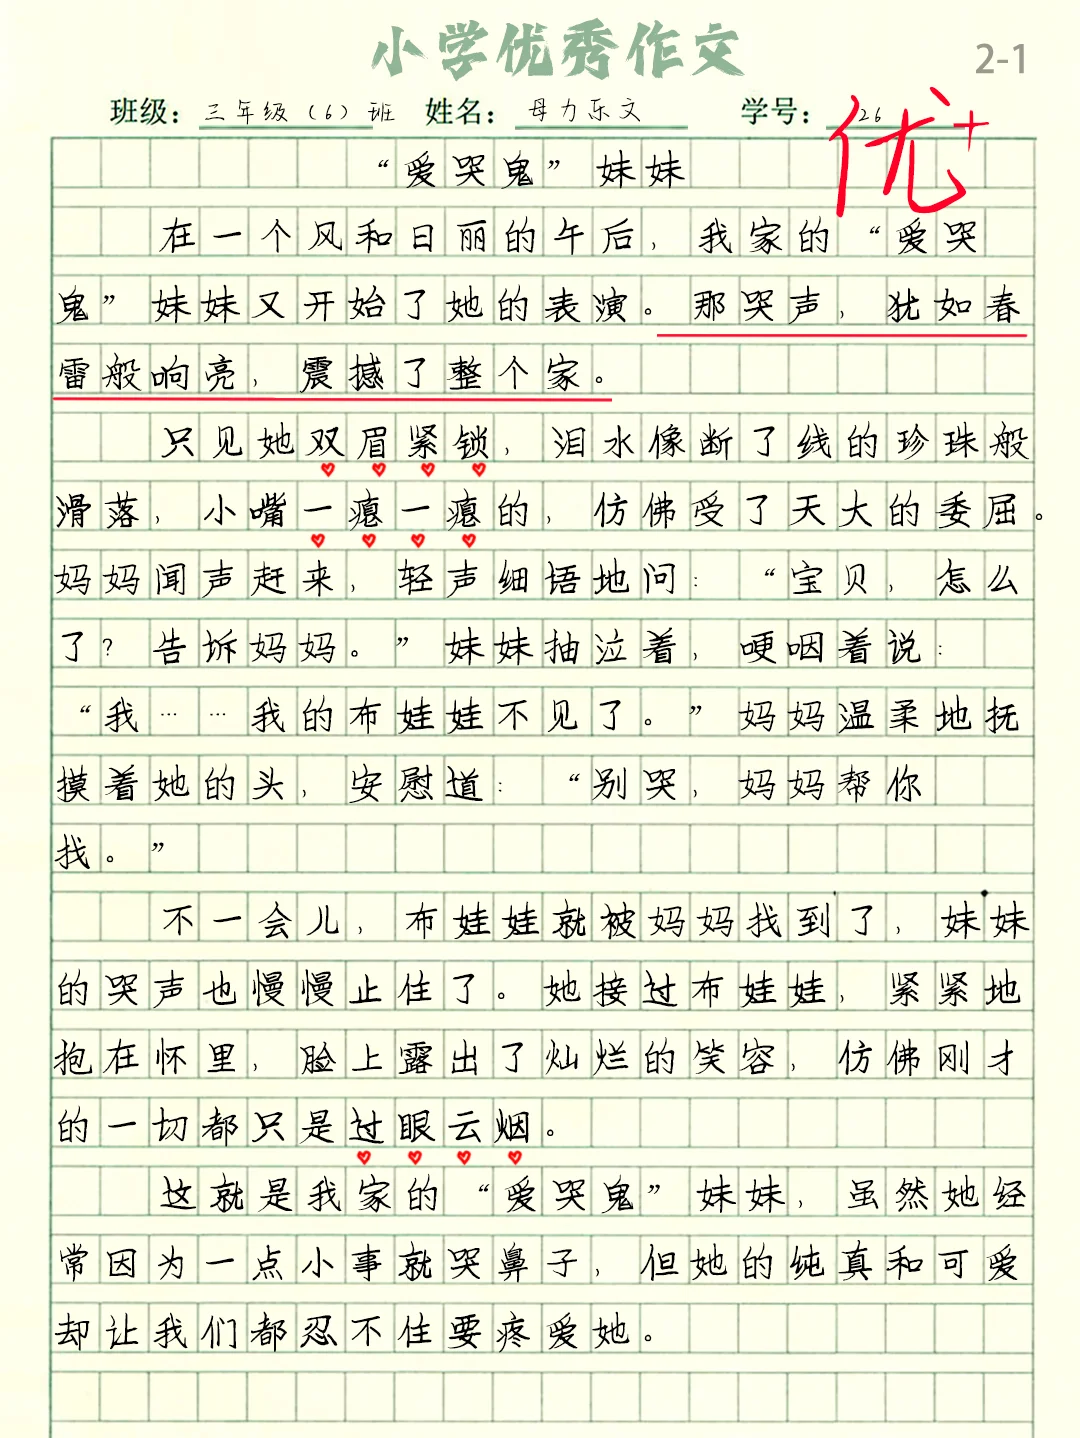 小学优秀作文
2-1
班级：三年级（6）班 姓名：母力乐文 学号：26
优+
“爱哭鬼”妹妹
在一个风和日丽的午后，我家的“爱哭
鬼”妹妹又开始了她的表演。那哭声，犹如春
雷般响亮，震撼了整个家。
只见她双眉紧锁，泪水像断了线的珍珠般
滑落，小嘴一瘪一瘪的，仿佛受了天大的委屈。
妈妈闻声赶来，轻声细语地问：“宝贝，怎么
了？告诉妈妈。”妹妹抽泣着，哽咽着说：
“我……我的布娃娃不见了。”妈妈温柔地抚
摸着她的头，安慰道：“别哭，妈妈帮你
找。”
不一会儿，布娃娃就被妈妈找到了，妹妹
的哭声也慢慢止住了。她接过布娃娃，紧紧地
抱在怀里，脸上露出了灿烂的笑容，仿佛刚才
的一切都只是过眼云烟。
这就是我家的“爱哭鬼”妹妹，虽然她经
常因为一点小事就哭鼻子，但她的纯真和可爱
却让我们都忍不住要疼爱她。